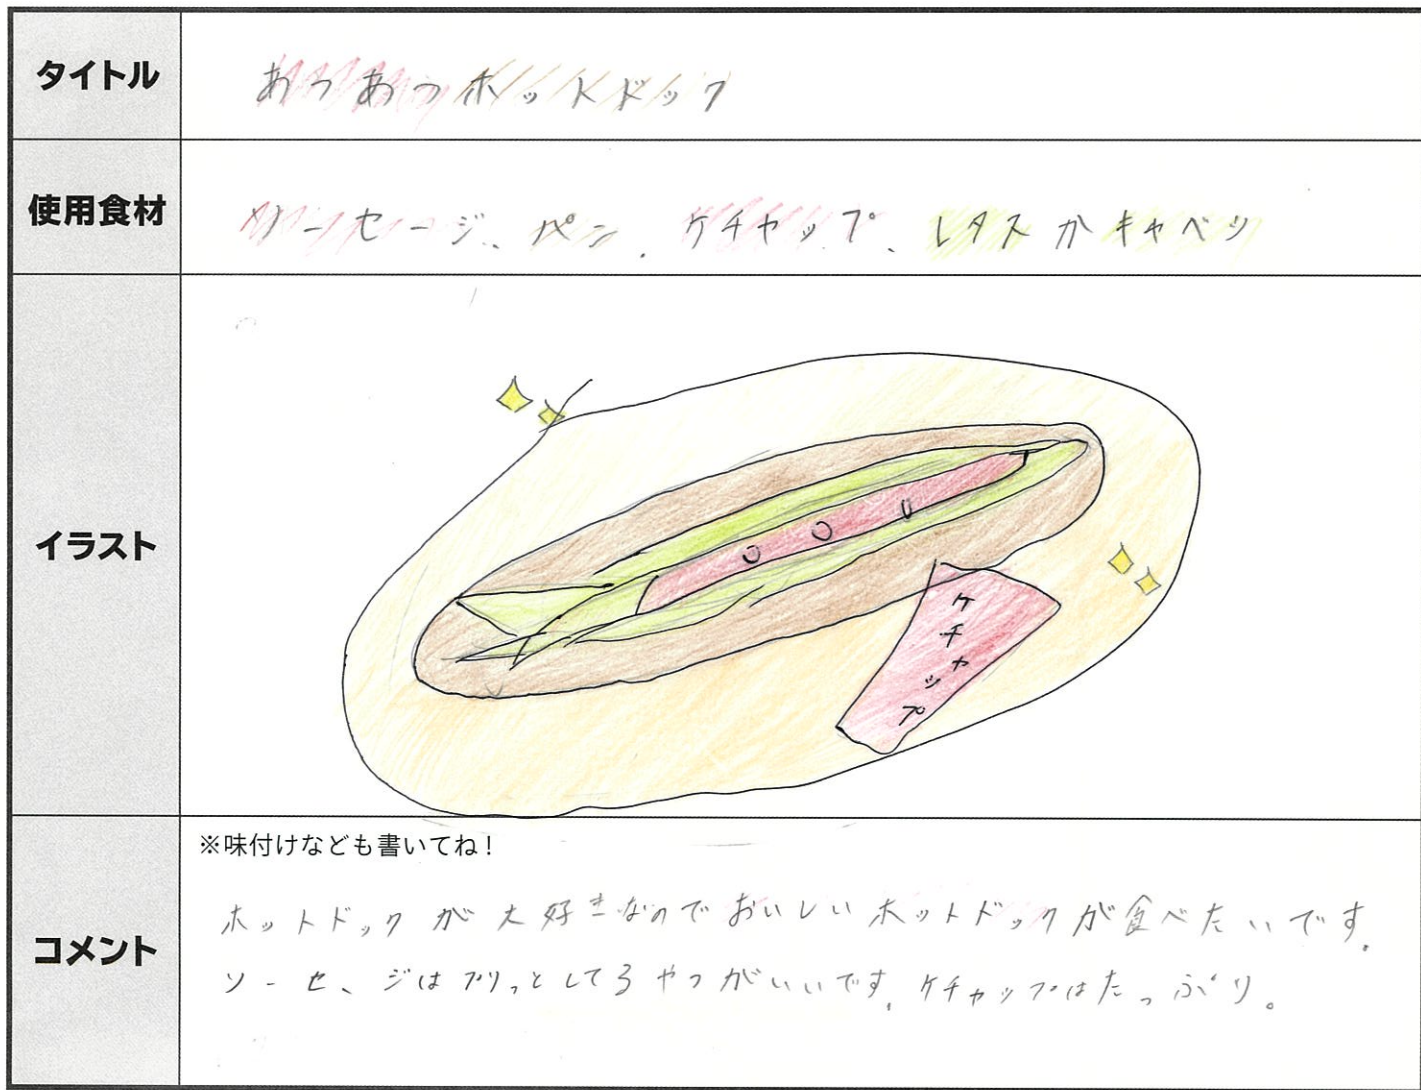 タイトル
あつあつホットドック
使用食材
ソーセージ、パン、ケチャップ、レタスかキャベツ
イラスト
ケチャップ
コメント
※味付けなども書いてね!
ホットドックが大好きなのでおいしいホットドックが食べたいです。
ソーセ、ジはプリっとしてるやつがいいです。ケチャップはたっぷり。